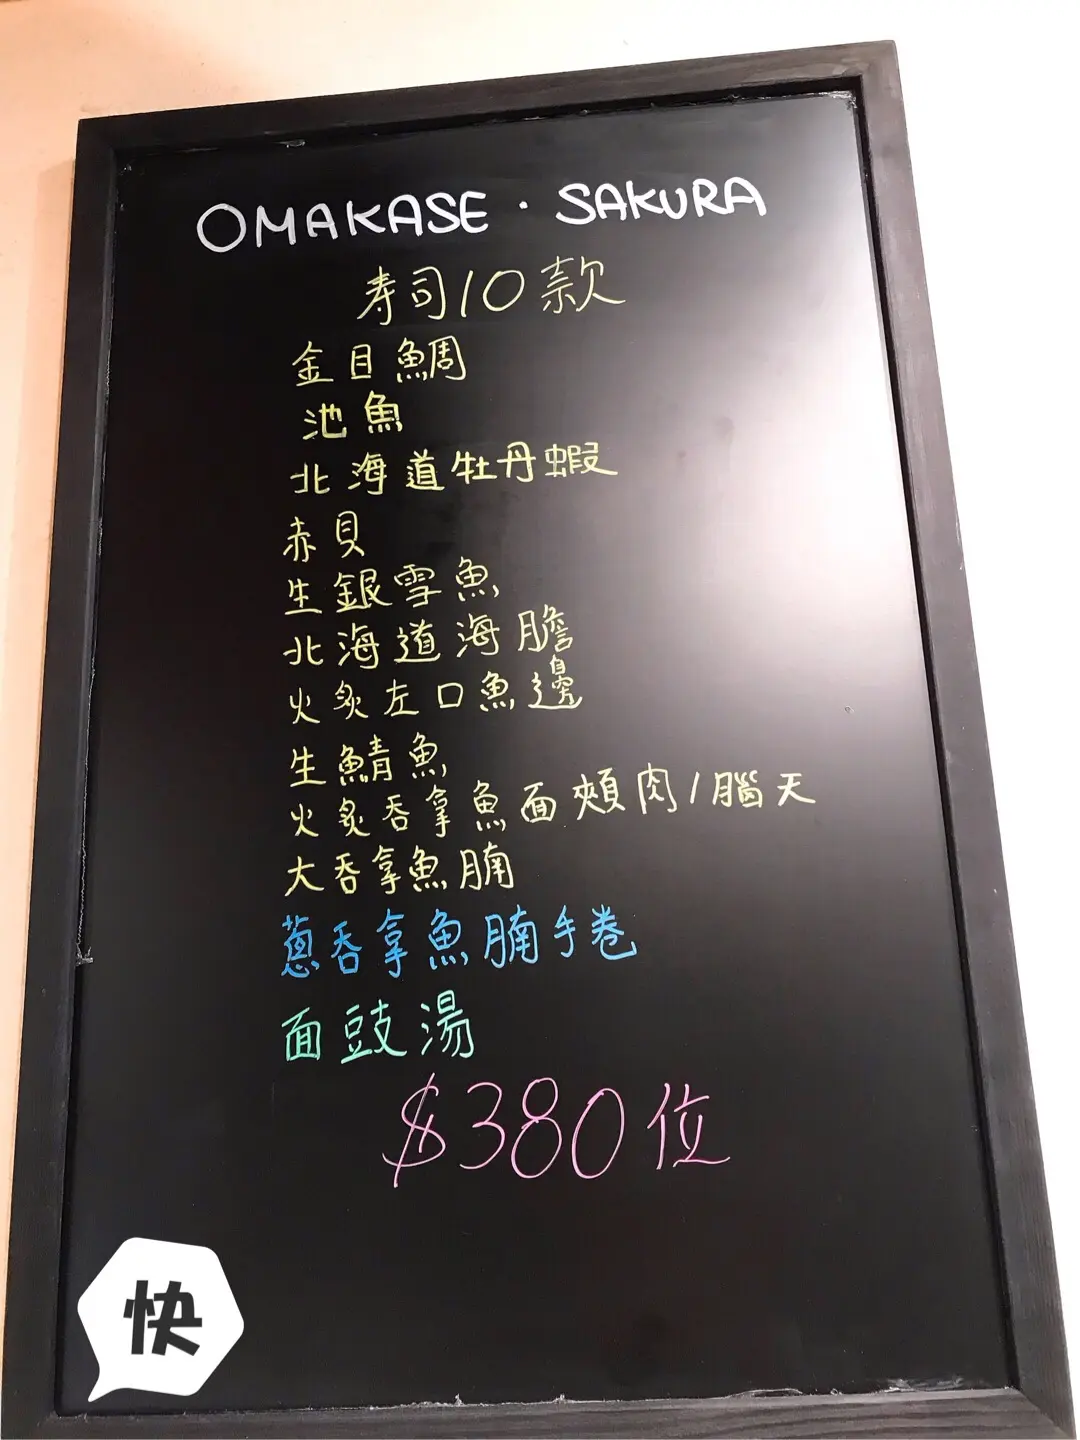 OMAKASE · SAKURA
寿司10款
金目鯛
池魚
北海道牡丹蝦
赤貝
生銀雪魚
北海道海膽
火炙左口魚邊
生鯖魚
火炙吞拿魚面頰肉/腦天
大吞拿魚腩
蔥吞拿魚腩手卷
面豉湯
$380位
快